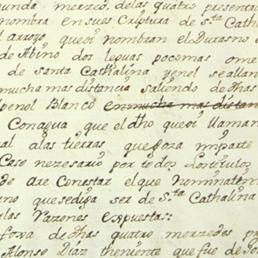 unda merzed, de las quatro presentad
nombra en su escriptura de Sta Cathal
l arroyo, que oi nombran el Durasno d
de Abino dos leguas poco mas o me
de santa Cathalina yen el se allan
mucha mas distancia saliendo de thas
peñol Blanco en mucha mas distan
Con agua que el dho que oi llaman
al alas tierras que
Case nesesario por todos los titulos
de are Constar el que Nominaten
no que se diga ser de Sta Cathalina
las Razones expuestas:
foxa de thas quatro merzedes
Alonso Diaz theniente que fue de